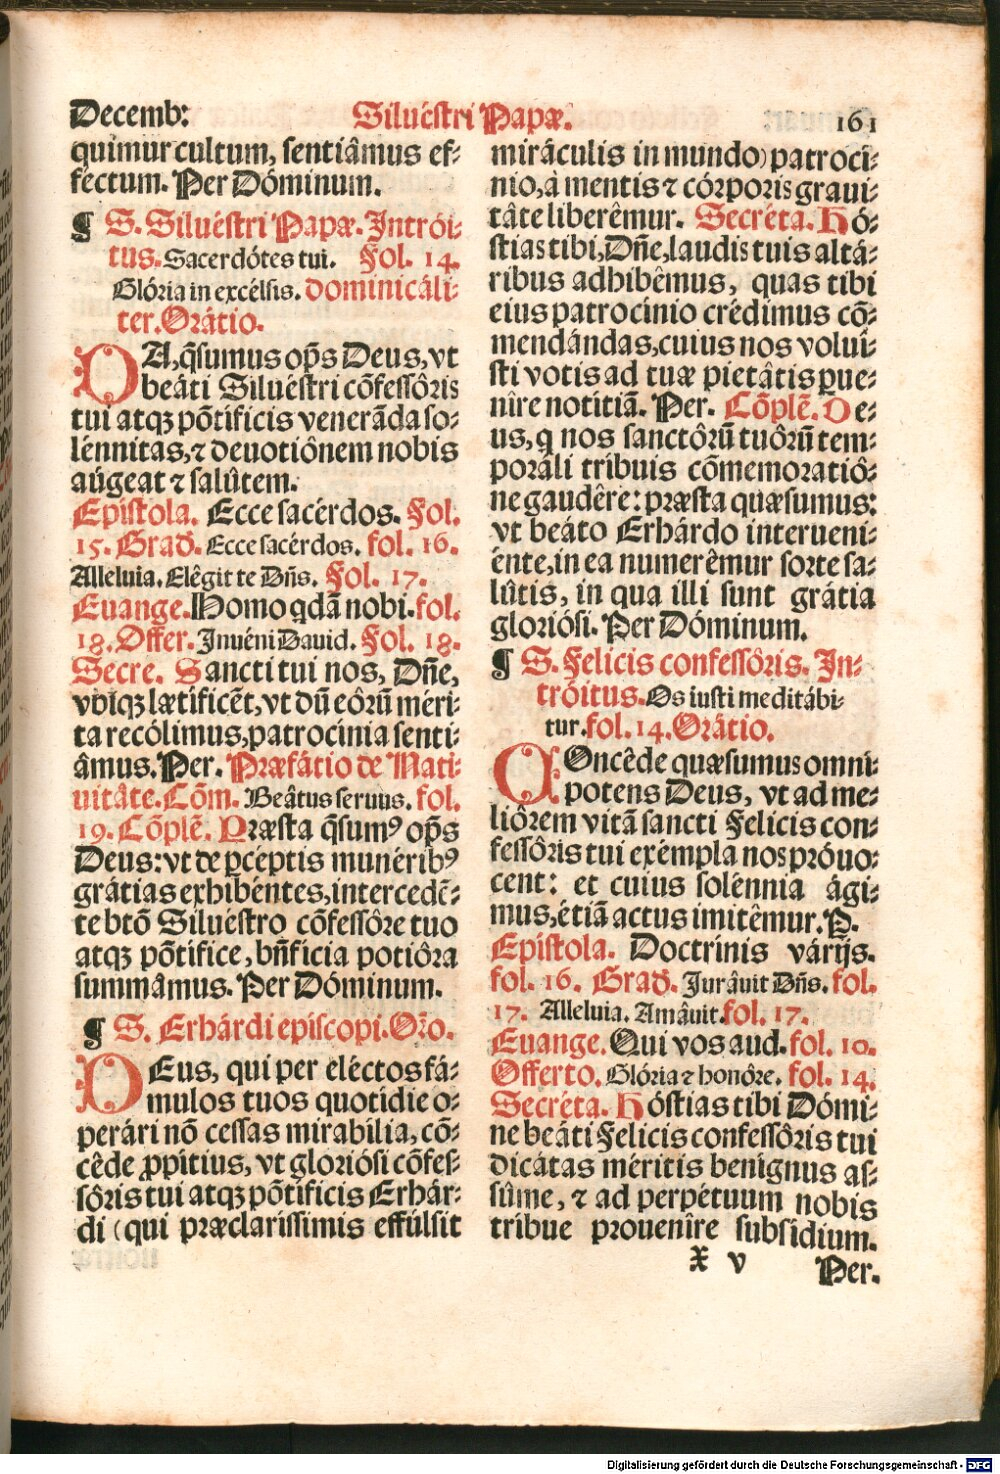 Decemb: Siluéstri Papæ. 161
quimur cultum, sentiâmus ef-
féctum. Per Dóminum.
¶ S. Siluéstri Papæ. Intrói-
tus. Sacerdótes tui. Fol. 14.
Glória in excélsis. dominicáli-
ter. Orátio.
DA, q̃sumus op̃s Deus, vt
beáti Siluéstri cõfessôris
tui atqꝫ põtificis venerãda so-
lénnitas, ⁊ deuotiônem nobis
aúgeat ⁊ salûtem.
Epistola. Ecce sacérdos. Fol.
15. Grad̃. Ecce sacérdos. fol. 16.
Alleluia. Elêgit te Dñs. Fol. 17.
Euange. Homo qdã nobi. fol.
18. Offer. Inuéni Dauid. Fol. 18.
Secre. Sancti tui nos, Dñe,
vbiqꝫ lætificẽt, vt dũ eôrũ méri-
ta recólimus, patrocínia senti-
âmus. Per. Præfátio de Nati-
uitâte. Cõm. Beâtus seruus. fol.
19. Cõplẽ. Præsta q̃sumꝰ op̃s
Deus: vt de ꝑcéptis munéribꝰ
grátias exhibéntes, intercedẽ-
te btõ Siluéstro cõfessôre tuo
atqꝫ põtífice, bñficia potiôra
summâmus. Per Dóminum.
¶ S. Erhárdi episcopi. Orõ.
DEus, qui per eléctos fá-
mulos tuos quotidie o-
perári nõ cessas mirabília, cõ-
cêde ꝓpítius, vt gloriósi cõfes-
sôris tui atqꝫ põtíficis Erhár-
di (qui præclaríssimis effúlsit
miráculis in mundo) patrocí-
nio, à mentis ⁊ córporis graui-
tâte liberêmur. Secréta. Hó-
stias tibi, Dñe, laudis tuis altá-
ribus adhibêmus, quas tibi
eius patrocínio crédimus cõ-
mendándas, cuius nos voluí-
sti votis ad tuæ pietâtis ꝑue-
nîre notítiã. Per. Cõplẽ. De-
us, q nos sanctôrũ tuôrũ tem-
porâli tríbuis cõmemoratiô-
ne gaudêre: præsta quæsumus:
vt beáto Erhárdo interueni-
énte, in ea numerêmur sorte sa-
lûtis, in qua illi sunt grátia
gloriósi. Per Dóminum.
¶ S. Felicis confessôris. In-
tróitus. Os iusti meditábi-
tur. fol. 14. Orátio.
COncêde quæsumus omni-
potens Deus, vt ad me-
liôrem vitã sancti Felícis con-
fessôris tui exémpla nos próuo-
cent: et cuius solénnia ági-
mus, étiã actus imitêmur. P.
Epistola. Doctrínis várijs.
fol. 16. Grad̃. Jurâuit Dñs. fol.
17. Alleluia. Amâuit. fol. 17.
Euange. Qui vos aud. fol. 10.
Offerto. Glória ⁊ honôre. fol. 14.
Secréta. Hóstias tibi Dómi-
ne beáti Felícis confessôris tui
dicátas méritis benígnus as-
sûme, ⁊ ad perpétuum nobis
tríbue prouenîre subsídium.
X v Per.
Digitalisierung gefördert durch die Deutsche Forschungsgemeinschaft - DFG